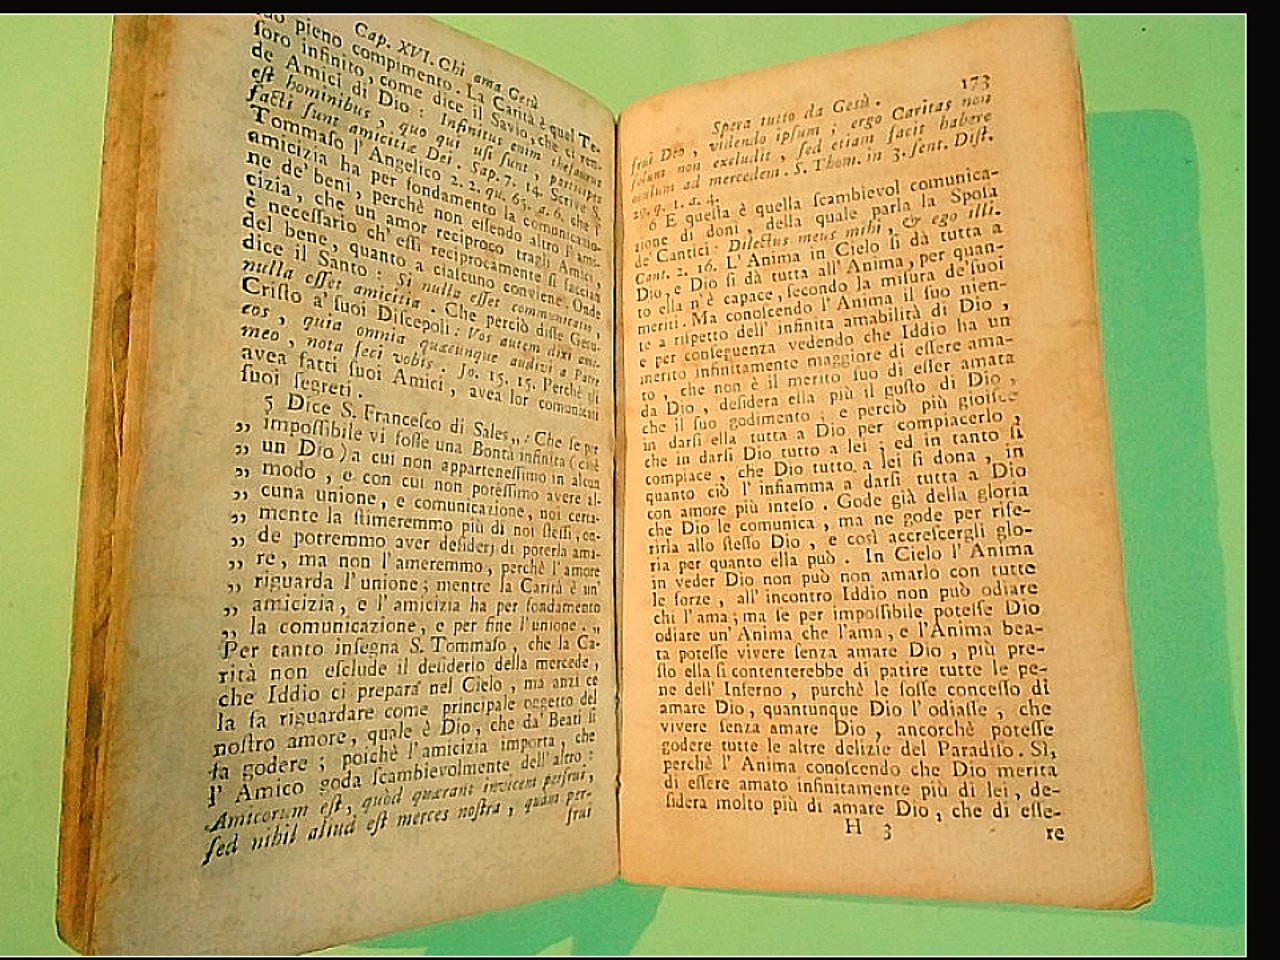 Cap. XVI. Chi ama Gesù
suo pieno compimento. La Carità è quel Te-
soro infinito, come dice il Savio, che ci ren-
de Amici di Dio: Infinitus enim thesaurus
est hominibus, quo qui usi sunt, participes
facti sunt amicitiæ Dei. Sap. 7. 14. Scrive S.
Tommaso l'Angelico 2. 2. qu. 65. a. 6. che l'
amicizia ha per fondamento la comunicazio-
ne de' beni, perchè non essendo altro l'ami-
cizia, che un amor reciproco tragli Amici,
è necessario ch' essi reciprocamente si faccian
del bene, quanto a ciascuno conviene. Onde
dice il Santo: Si nulla esset communicatio,
nulla esset amicitia. Che perciò disse Gesu-
Cristo a' suoi Discepoli: Vos autem dixi ami-
cos, quia omnia quæcunque audivi a Patre
meo, nota feci vobis. Jo. 15. 15. Perchè gli
avea fatti suoi Amici, avea lor comunicati
suoi segreti.
5 Dice S. Francesco di Sales,,: Che se per
,, impossibile vi fosse una Bontà infinita (cioè
,, un Dio) a cui non appartenessimo in alcun
,, modo, e con cui non potessimo avere al-
,, cuna unione, e comunicazione, noi certa-
,, mente la stimeremmo più di noi stessi; on-
,, de potremmo aver desiderj di poterla ama-
,, re, ma non l'ameremmo, perchè l'amore
,, riguarda l'unione; mentre la Carità è un'
,, amicizia, e l'amicizia ha per fondamento
,, la comunicazione, e per fine l'unione.,,
Per tanto insegna S. Tommaso, che la Ca-
rità non esclude il desiderio della mercede,
che Iddio ci prepara nel Cielo, ma anzi ce
la fa riguardare come principale oggetto del
nostro amore, quale è Dio, che da' Beati si
fa godere; poichè l'amicizia importa, che
l' Amico goda scambievolmente dell'altro:
Amicorum est, quòd quærant invicem perfrui,
sed nihil aliud est merces nostra, quàm per-
frui
173
Spera tutto da Gesù.
frui Deo, videndo ipsum; ergo Caritas non
solum non excludit, sed etiam facit habere
oculum ad mercedem. S. Thom. in 3. sent. Dist.
29. q. 1. a. 4.
6 E quella è quella scambievol comunica-
zione di doni, della quale parla la Sposa
de' Cantici: Dilectus meus mihi, & ego illi.
Cant. 2. 16. L'Anima in Cielo si dà tutta a
Dio, e Dio si dà tutta all'Anima, per quan-
to ella n'è capace, secondo la misura de'suoi
meriti. Ma conoscendo l'Anima il suo nien-
te a rispetto dell' infinita amabilità di Dio,
e per conseguenza vedendo che Iddio ha un
merito infinitamente maggiore di essere ama-
to, che non è il merito suo di esser amata
da Dio, desidera ella più il gusto di Dio,
che il suo godimento; e perciò più gioisce
in darsi ella tutta a Dio per compiacerlo,
che in darsi Dio tutto a lei; ed in tanto si
compiace, che Dio tutto a lei si dona, in
quanto ciò l'infiamma a darsi tutta a Dio
con amore più inteso. Gode già della gloria
che Dio le comunica, ma ne gode per rife-
rirla allo stesso Dio, e così accrescergli glo-
ria per quanto ella può. In Cielo l'Anima
in veder Dio non può non amarlo con tutte
le forze, all' incontro Iddio non può odiare
chi l'ama; ma se per impossibile potesse Dio
odiare un' Anima che l'ama, e l'Anima bea-
ta potesse vivere senza amare Dio, più pre-
sto ella si contenterebbe di patire tutte le pe-
ne dell' Inferno, purchè le fosse concesso di
amare Dio, quantunque Dio l'odiasse, che
vivere senza amare Dio, ancorchè potesse
godere tutte le altre delizie del Paradiso. Sì,
perchè l'Anima conoscendo che Dio merita
di essere amato infinitamente più di lei, de-
sidera molto più di amare Dio, che di esse-
H 3
re